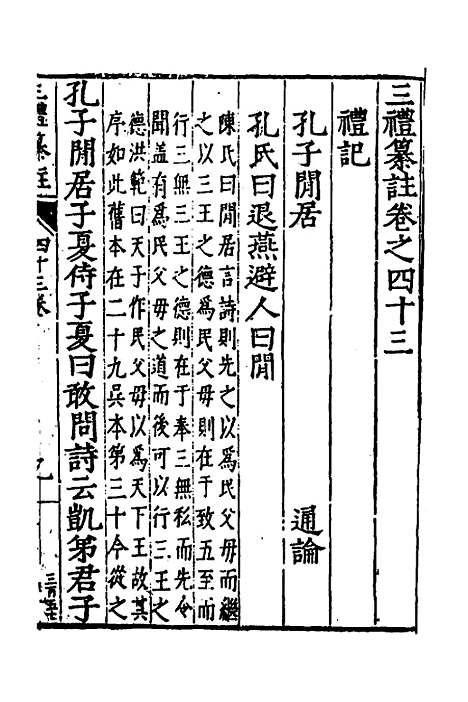 三禮纂註卷之四十三
禮記
孔子閒居　通論
孔氏曰退燕避人曰閒
陳氏曰閒居言詩則先之以爲民父毋而繼
之以三王之德爲民父毋則在于致五至而
行三無三王之德則在于奉三無私而先令
聞盖有爲民父毋之道而後可以行三王之
德洪範曰天子作民父毋以爲天下王故其
序如此舊本在二十九吳本第三十今從之
孔子閒居子夏侍子夏曰敢問詩云凱弟君子
三禮纂註
四十三卷